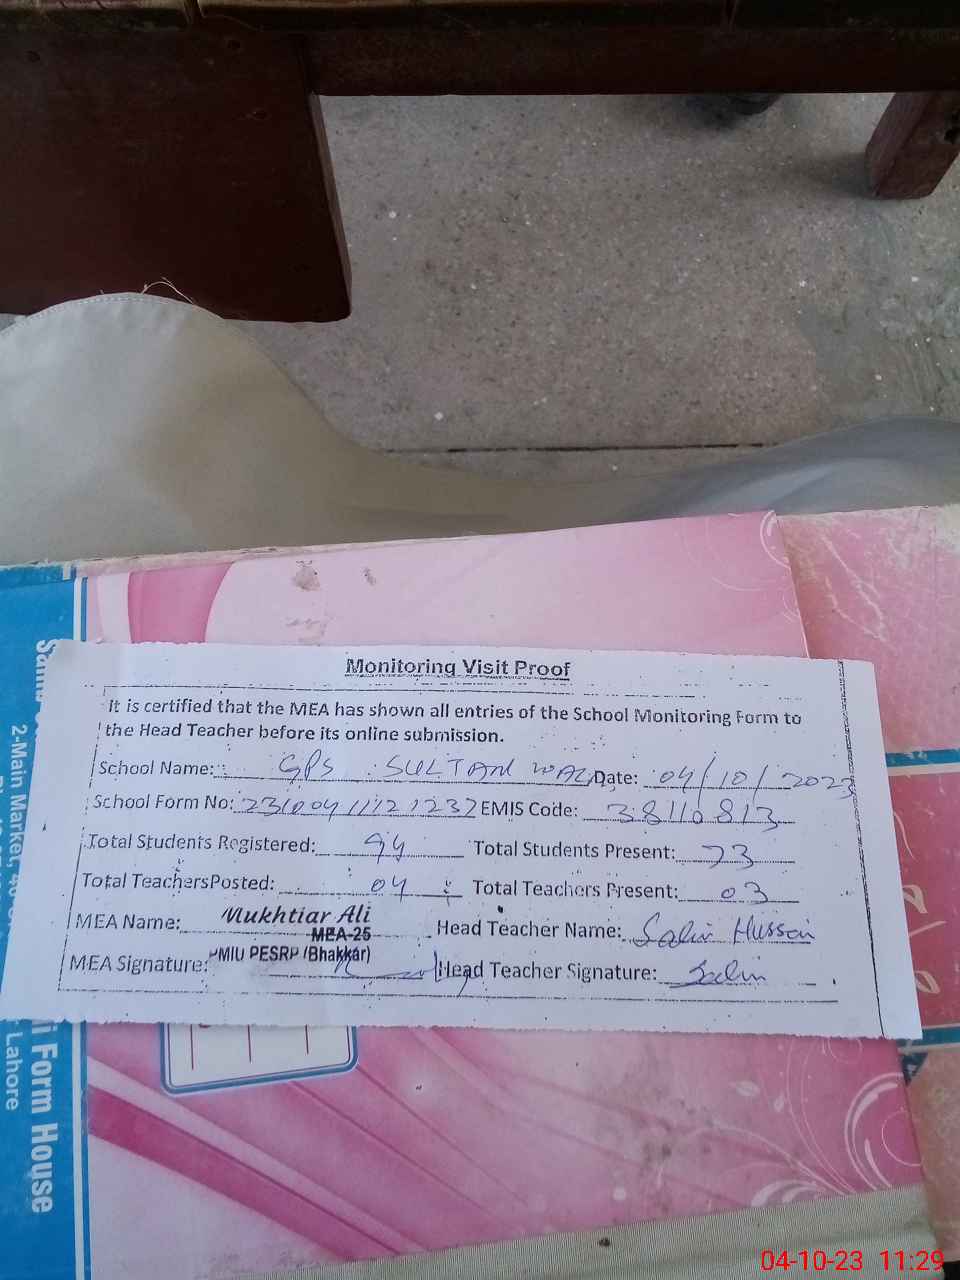 Monitoring Visit Proof
It is certified that the MEA has shown all entries of the School Monitoring Form to
the Head Teacher before its online submission.
School Name: GPS SULTAN WALI Date: 04/10/2023
School Form No: EMIS Code: 38110813
Total Students Registered: 94 Total Students Present: 73
Total TeachersPosted: 04 Total Teachers Present: 03
MEA Name: Mukhtiar Ali Head Teacher Name: Hussain
MEA-25
PMIU PESRP (Bhakkar)
MEA Signature: Head Teacher Signature:
2-Main Market,
Form House
Lahore
04-10-23 11:29